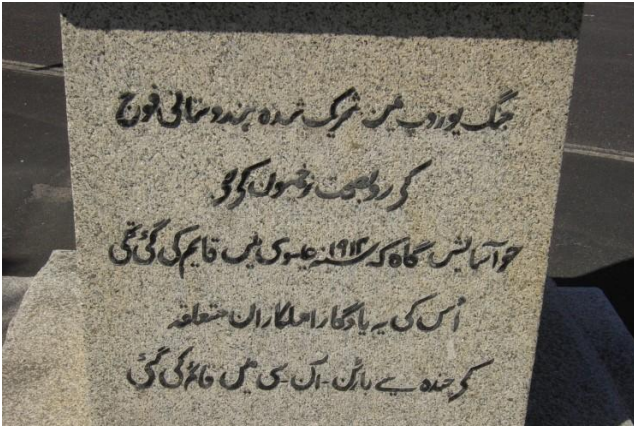 جنگ یوروپ میں شریک شدہ ہندوستانی فوج
کی روبصحت زخمیوں کی
جو آسایش گاہ کہ ۱۹۱۴ سنہ عیسوی میں قایم کی گئی تھی
اُس کی یہ یادگار اہلکاران متعلقہ
کی چندہ سے بارٹن - آن - سی میں قائم کی گئی